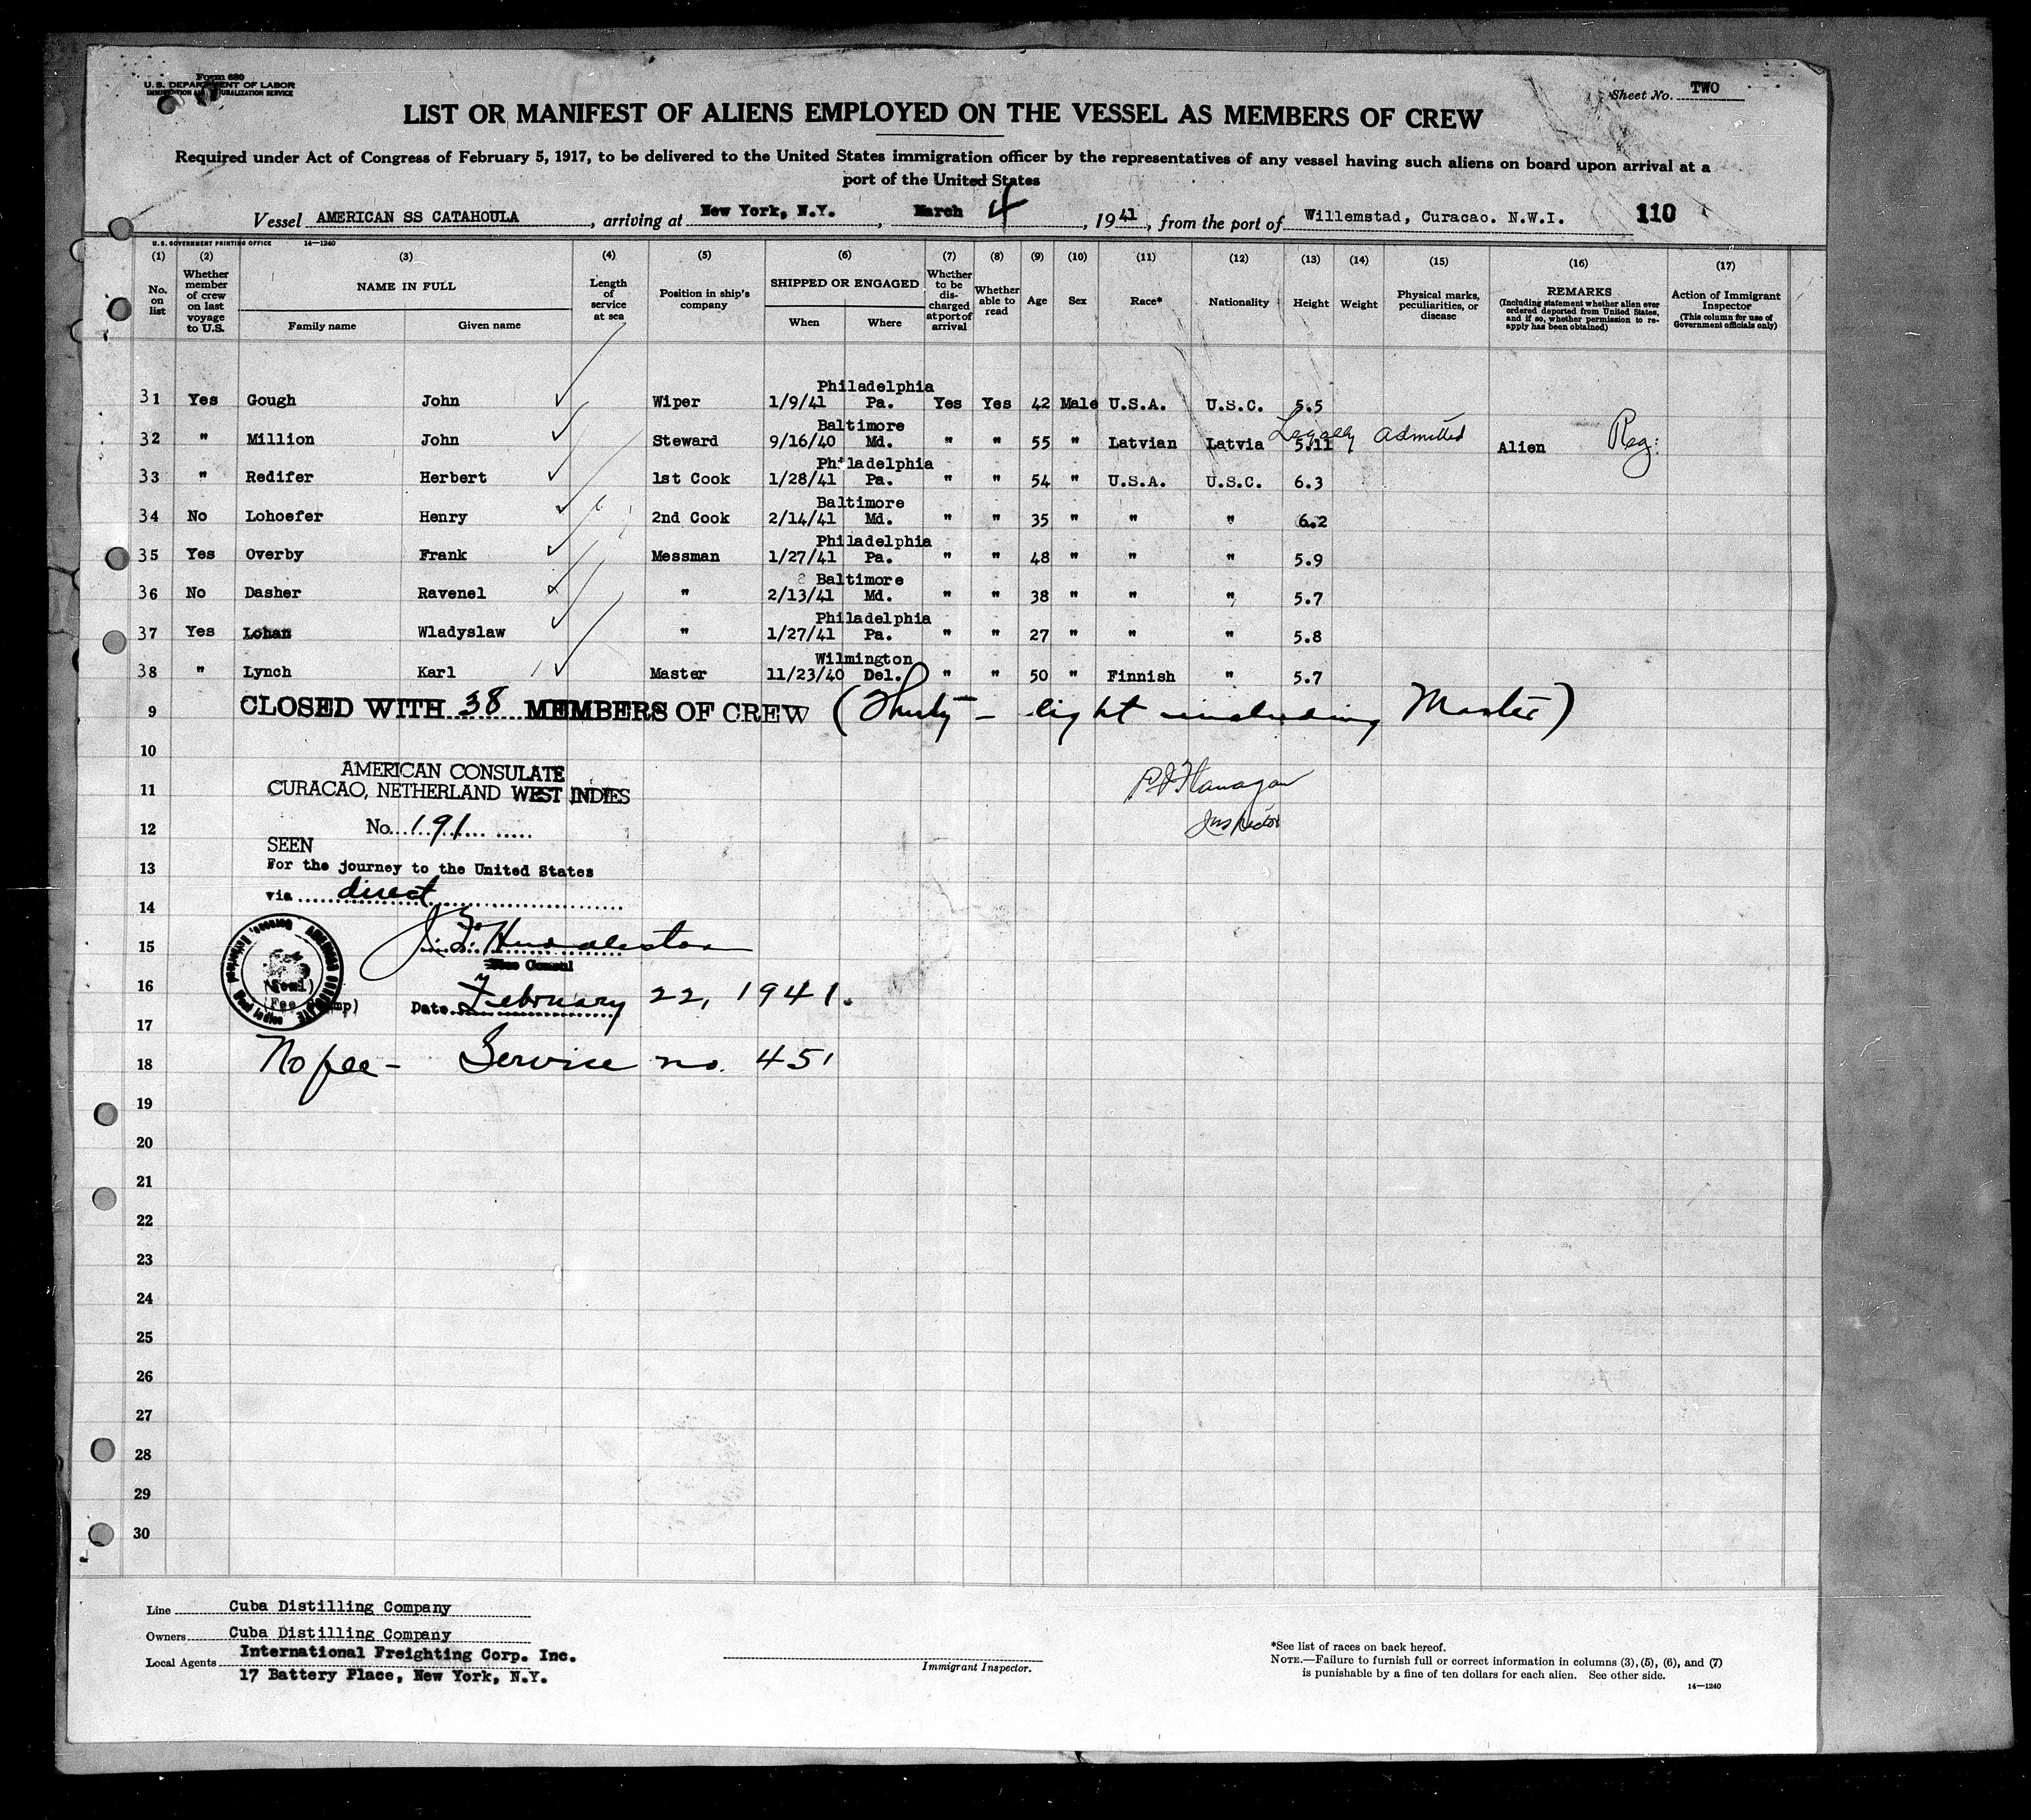 Form 680
U.S. DEPARTMENT OF LABOR
IMMIGRATION AND NATURALIZATION SERVICE
Sheet No. TWO
LIST OR MANIFEST OF ALIENS EMPLOYED ON THE VESSEL AS MEMBERS OF CREW
Required under Act of Congress of February 5, 1917, to be delivered to the United States immigration officer by the representatives of any vessel having such aliens on board upon arrival at a
port of the United States
Vessel AMERICAN SS CATAHOULA, arriving at New York, N.Y., March 4, 1941, from the port of Willemstad, Curacao. N.W.I. 110
U.S. GOVERNMENT PRINTING OFFICE 14—1240
(1) (2) (3) (4) (5) (6) (7) (8) (9) (10) (11) (12) (13) (14) (15) (16) (17)
No. on list
Whether member of crew on last voyage to U.S.
NAME IN FULL
Family name Given name
Length of service at sea
Position in ship's company
SHIPPED OR ENGAGED
When Where
Whether to be discharged at port of arrival
Whether able to read
Age
Sex
Race*
Nationality
Height
Weight
Physical marks, peculiarities, or disease
REMARKS
(Including statement whether alien ever ordered deported from United States, and if so, whether permission to re-apply has been obtained)
Action of Immigrant Inspector
(This column for use of Government officials only)
Philadelphia
31 Yes Gough John Wiper 1/9/41 Pa. Yes Yes 42 Male U.S.A. U.S.C. 5.5
Baltimore Legally Admitted
32 " Million John Steward 9/16/40 Md. " " 55 " Latvian Latvia 5.11 Alien Reg:
Philadelphia
33 " Redifer Herbert 1st Cook 1/28/41 Pa. " " 54 " U.S.A. U.S.C. 6.3
Baltimore
34 No Lohoefer Henry 2nd Cook 2/14/41 Md. " " 35 " " " 6.2
Philadelphia
35 Yes Overby Frank Messman 1/27/41 Pa. " " 48 " " " 5.9
Baltimore
36 No Dasher Ravenel " 2/13/41 Md. " " 38 " " " 5.7
Philadelphia
37 Yes Lohan Wladyslaw " 1/27/41 Pa. " " 27 " " " 5.8
Wilmington
38 " Lynch Karl Master 11/23/40 Del. " " 50 " Finnish " 5.7
9 CLOSED WITH 38 MEMBERS OF CREW (Thirty - eight including Master)
10
AMERICAN CONSULATE
11 CURACAO, NETHERLAND WEST INDIES
P J Flanagan
Inspector
12 No. 191
SEEN
13 For the journey to the United States
via direct
14
15 J. F. Huddleston
Vice Consul
16 Date February 22, 1941.
(Seal)
17
18 No fee - Service no. 451
19
20
21
22
23
24
25
26
27
28
29
30
Line Cuba Distilling Company
Owners Cuba Distilling Company
Local Agents International Freighting Corp. Inc.
17 Battery Place, New York, N.Y.
Immigrant Inspector.
*See list of races on back hereof.
NOTE.—Failure to furnish full or correct information in columns (3), (5), (6), and (7)
is punishable by a fine of ten dollars for each alien. See other side.
14—1240